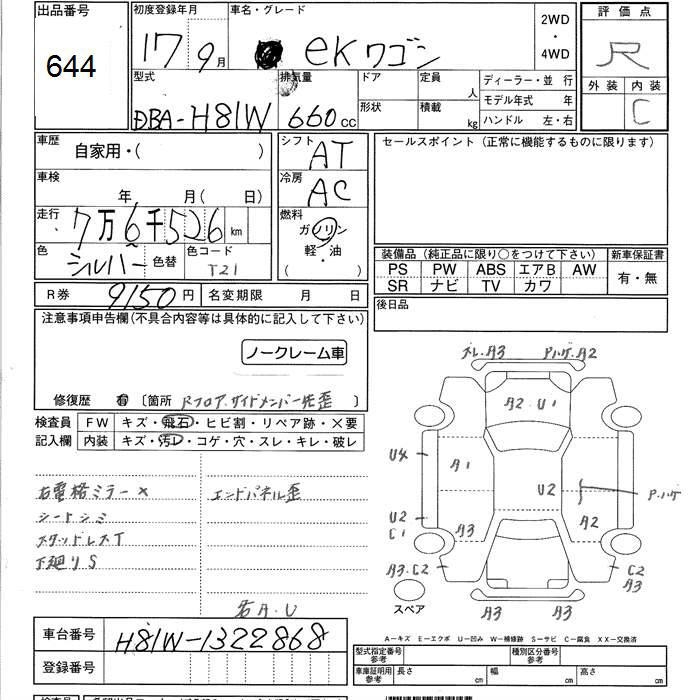 出品番号 初度登録年月 車名・グレード 2WD ・ 4WD 評価点
644 17年 9月 ekワゴン R
型式 排気量 ドア 定員 人 ディーラー・並行 外装 内装
DBA-H81W 660cc 形状 積載 kg モデル年式 年 C
ハンドル 左・右
車歴 自家用・( ) シフト AT セールスポイント (正常に機能するものに限ります)
車検 年 月( 日) 冷房 AC
走行 7万6千526km 燃料 ガソリン
色 シルバー 色替 色コード T21 軽・油 ( ・ )
装備品 (純正品に限り○をつけて下さい) 新車保証書
PS PW ABS エアB AW 有・無
SR ナビ TV カワ
R券 9150円 名変期限 月 日 後日品
注意事項申告欄(不具合内容等は具体的に記入して下さい)
ノークレーム車
修復歴 有 〔箇所 Rフロア.サイドメンバー先歪 〕
検査員 FW キズ・飛石・ヒビ割・リペア跡・×要
記入欄 内装 キズ・汚レ・コゲ・穴・スレ・キレ・破レ
右電格ミラー× エンドパネル歪
シートシミ
スタッドレスT
下廻りS
右A.U
ズレ.A3 P.ハゲ.A2
A2.U1
U4 A1 U2 P.ハゲ
U2 C1 A3 A2
A3.C2 C2 A3
スペア A3 A3
A-キズ E-エクボ U-凹み W-補修跡 S-サビ C-腐食 XX-交換済
車台番号 H81W-1322868
登録番号
型式指定番号 参考 種別区分番号 参考
車庫証明用 参考 長さ cm 幅 cm 高さ cm